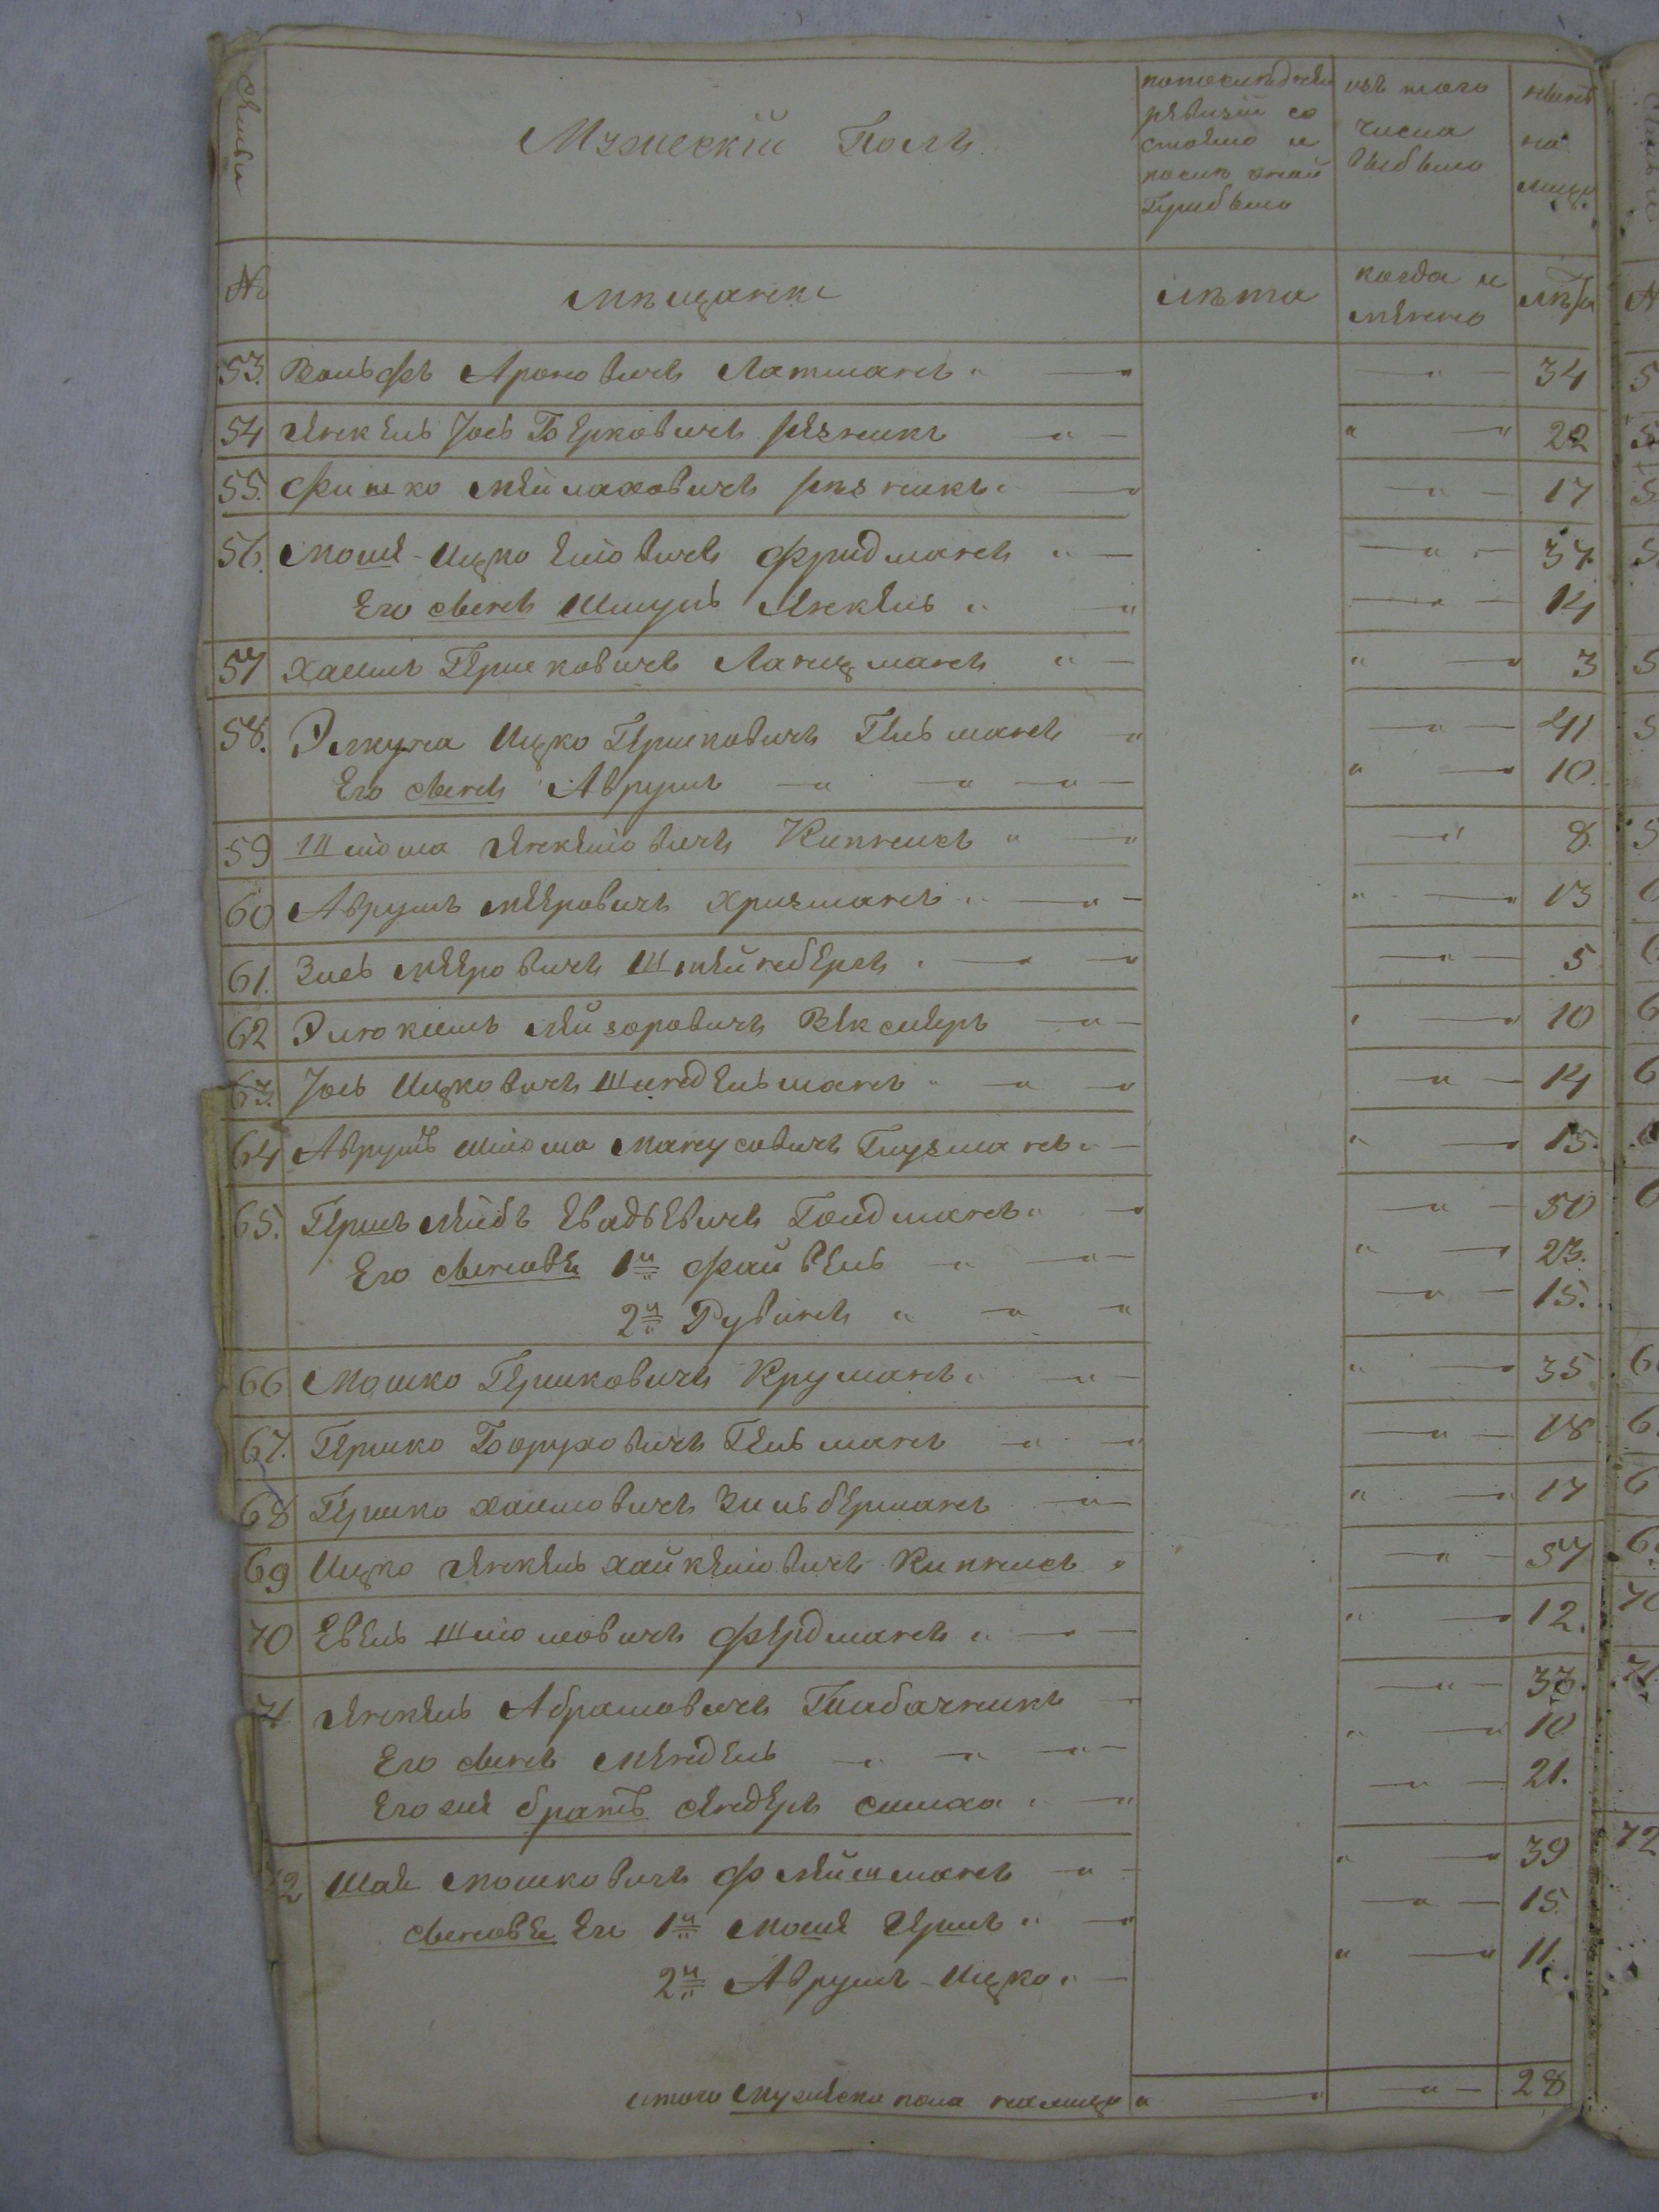 Семьи
Мужескій Полъ
по последней ревизіи состояло и после оной прибыло
изъ того числа выбыло
ныне на лицо
№
мещане
лѣта
когда и именно
лѣта
53. Вольфъ Ароновичъ Латманъ 34
54 Янкель Іось Берковичъ Резникъ 22
55. Фишко Меилаховичъ Резникъ 17
56. Моше-Ицко Елiовичъ Фридманъ 37
Его сынъ Шмуль Янкель 14
57 Хаимъ Гершковичъ Ланцманъ 3
58. Элкуна Ицко Гершковичъ Гельманъ 41
Его сынъ Аврумъ 10
59 Шлiома Янкелiовичъ Кипнисъ 8
60 Аврумъ Меировичъ Хризманъ 13
61. Зись Меировичъ Штейнбергъ 5
62 Элюкимъ Лейзоровичъ Векслеръ 10
63. Іось Ицковичъ Шиндельманъ 14
64 Аврумъ Шлiома Манусовичъ Глузманъ 13.
65. Гершъ Лейбъ Евадьевичъ Голдманъ 50
Его сыновье 1й Файвель 23.
2й Рувинъ 15.
66 Мошко Гершковичъ Круманъ 35
67. Гершко Боруховичъ Гельманъ 18
68 Гершко Хаимовичъ Зильберманъ 17
69 Ицко Янкель Хаикелiовичъ Кипнисъ 57
70 Евель Шлiомовичъ Фердманъ 12.
71 Янкель Абрамовичъ Табачникъ 33.
Его сынъ Мендель 10
Его же братъ Сендеръ Симха 21.
72 Шаи Мошковичъ Флейшманъ 39
Сыновье Его 1й Моше Гершъ 15
2й Аврумъ-Ицко 11.
итого мужеска пола на лицо 28